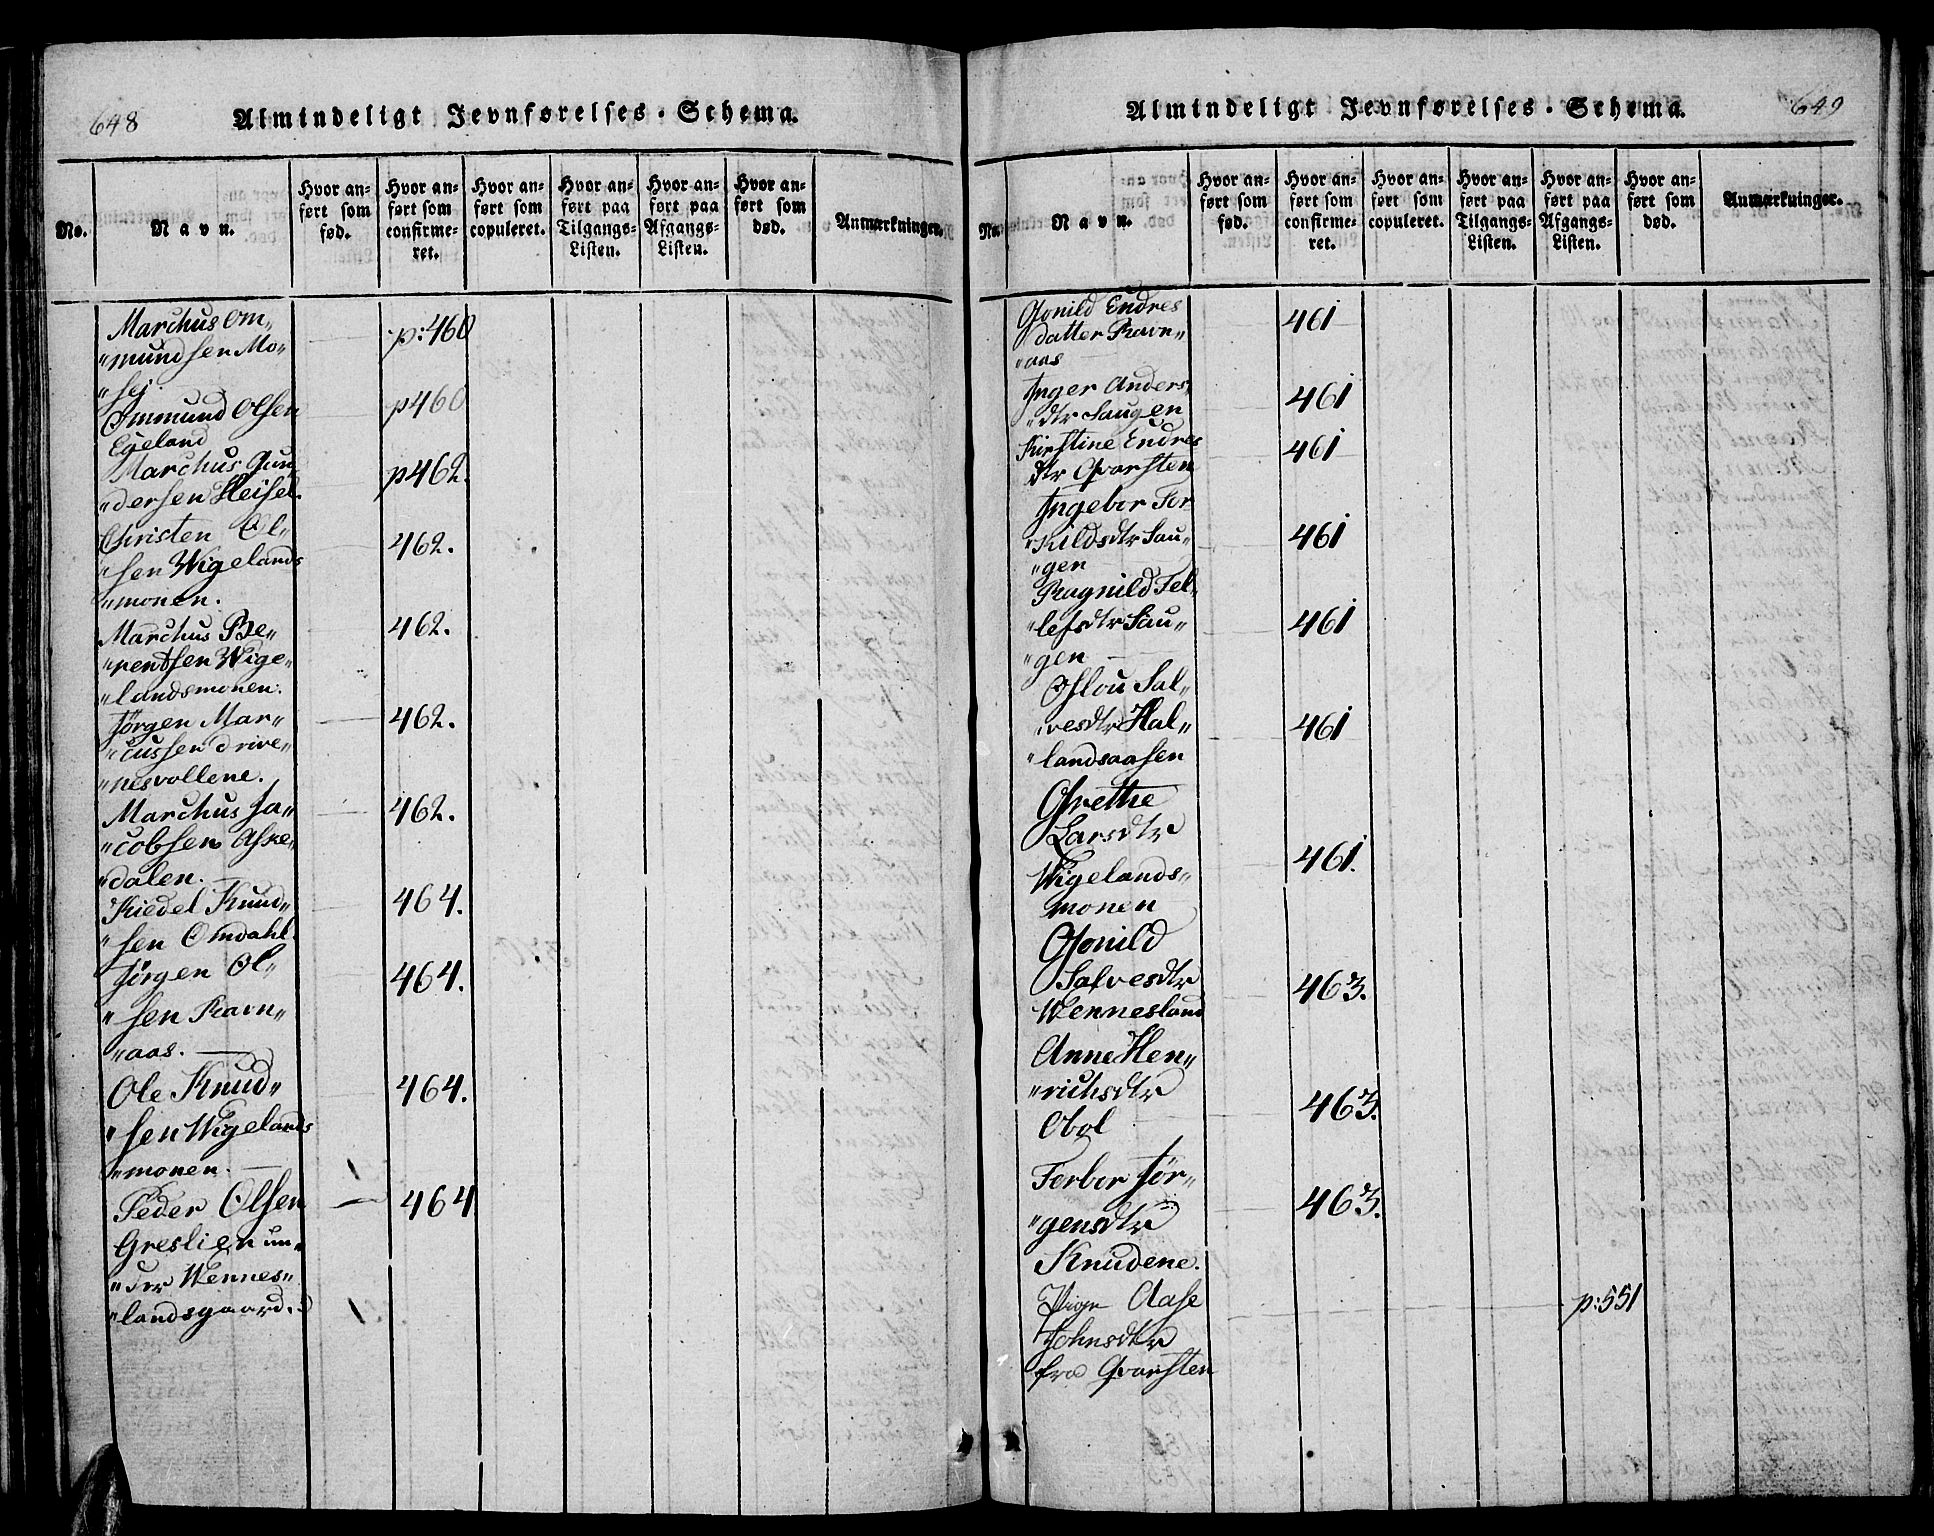 648
Almindeligt Jevnførelses-Schema.
No.
Navn.
Hvor an-
ført som
fød.
Hvor an-
ført som
confirme-
ret.
Hvor an-
ført som
copuleret.
Hvor an-
ført paa
Tilgangs-
Listen.
Hvor an-
ført paa
Afgangs-
Listen.
Hvor an-
ført som
død.
Anmærkninger.
Marchus Om„
„mundsen Mo„ p:460
„sej.
Ommund Olsen p460
Egeland
Marchus Gun„ p462.
„dersen Heisel.
Christen Ol„ 462.
„sen Wigelands
„monen.
Marchus Be„ 462.
„rentsen Wige„
„landsmonen.
Jørgen Mar„ 462.
„cussen Drive„
„nesvollene.
Marchus Ja„ 462.
„cobsen Aske„
„dalen.
Kiedel Knud„ 464.
„sen Omdahl.
Jørgen Ol„ 464.
„sen Ravn„
„aas.
Ole Knud„ 464.
„sen Wigelands
„monen.
Peder Olsen 464
Greslien un„
„der Wennes„
„landsgaard.
649
Almindeligt Jevnførelses-Schema.
No.
Navn.
Hvor an-
ført som
fød.
Hvor an-
ført som
confirme-
ret.
Hvor an-
ført som
copuleret.
Hvor an-
ført paa
Tilgangs-
Listen.
Hvor an-
ført paa
Afgangs-
Listen.
Hvor an-
ført som
død.
Anmærkninger.
Gonild Endres 461
datter Ravn„
„aas
Inger Anders 461
„dtr Haugen
Kirstine Endres 461
dtr Qvarsten
Ingebor Tor
„kildsdtr Hau„ 461
„gen
Ragnild Tel„
„lefsdtr Hau„ 461
„gen
Oslou Sal„
„vesdtr Hal„ 461
„landsaasen
Grethe
Larsdtr
Wigelands„ 461.
monen
Gonild
Salvesdtr 463.
Wennesland
Anne Hen„
„richsdtr 463.
Obol
Terbor Jør„ 463.
„gensdtr
Knudene.
Pige Aase p:551
Johnsdtr
fra Qvarsten